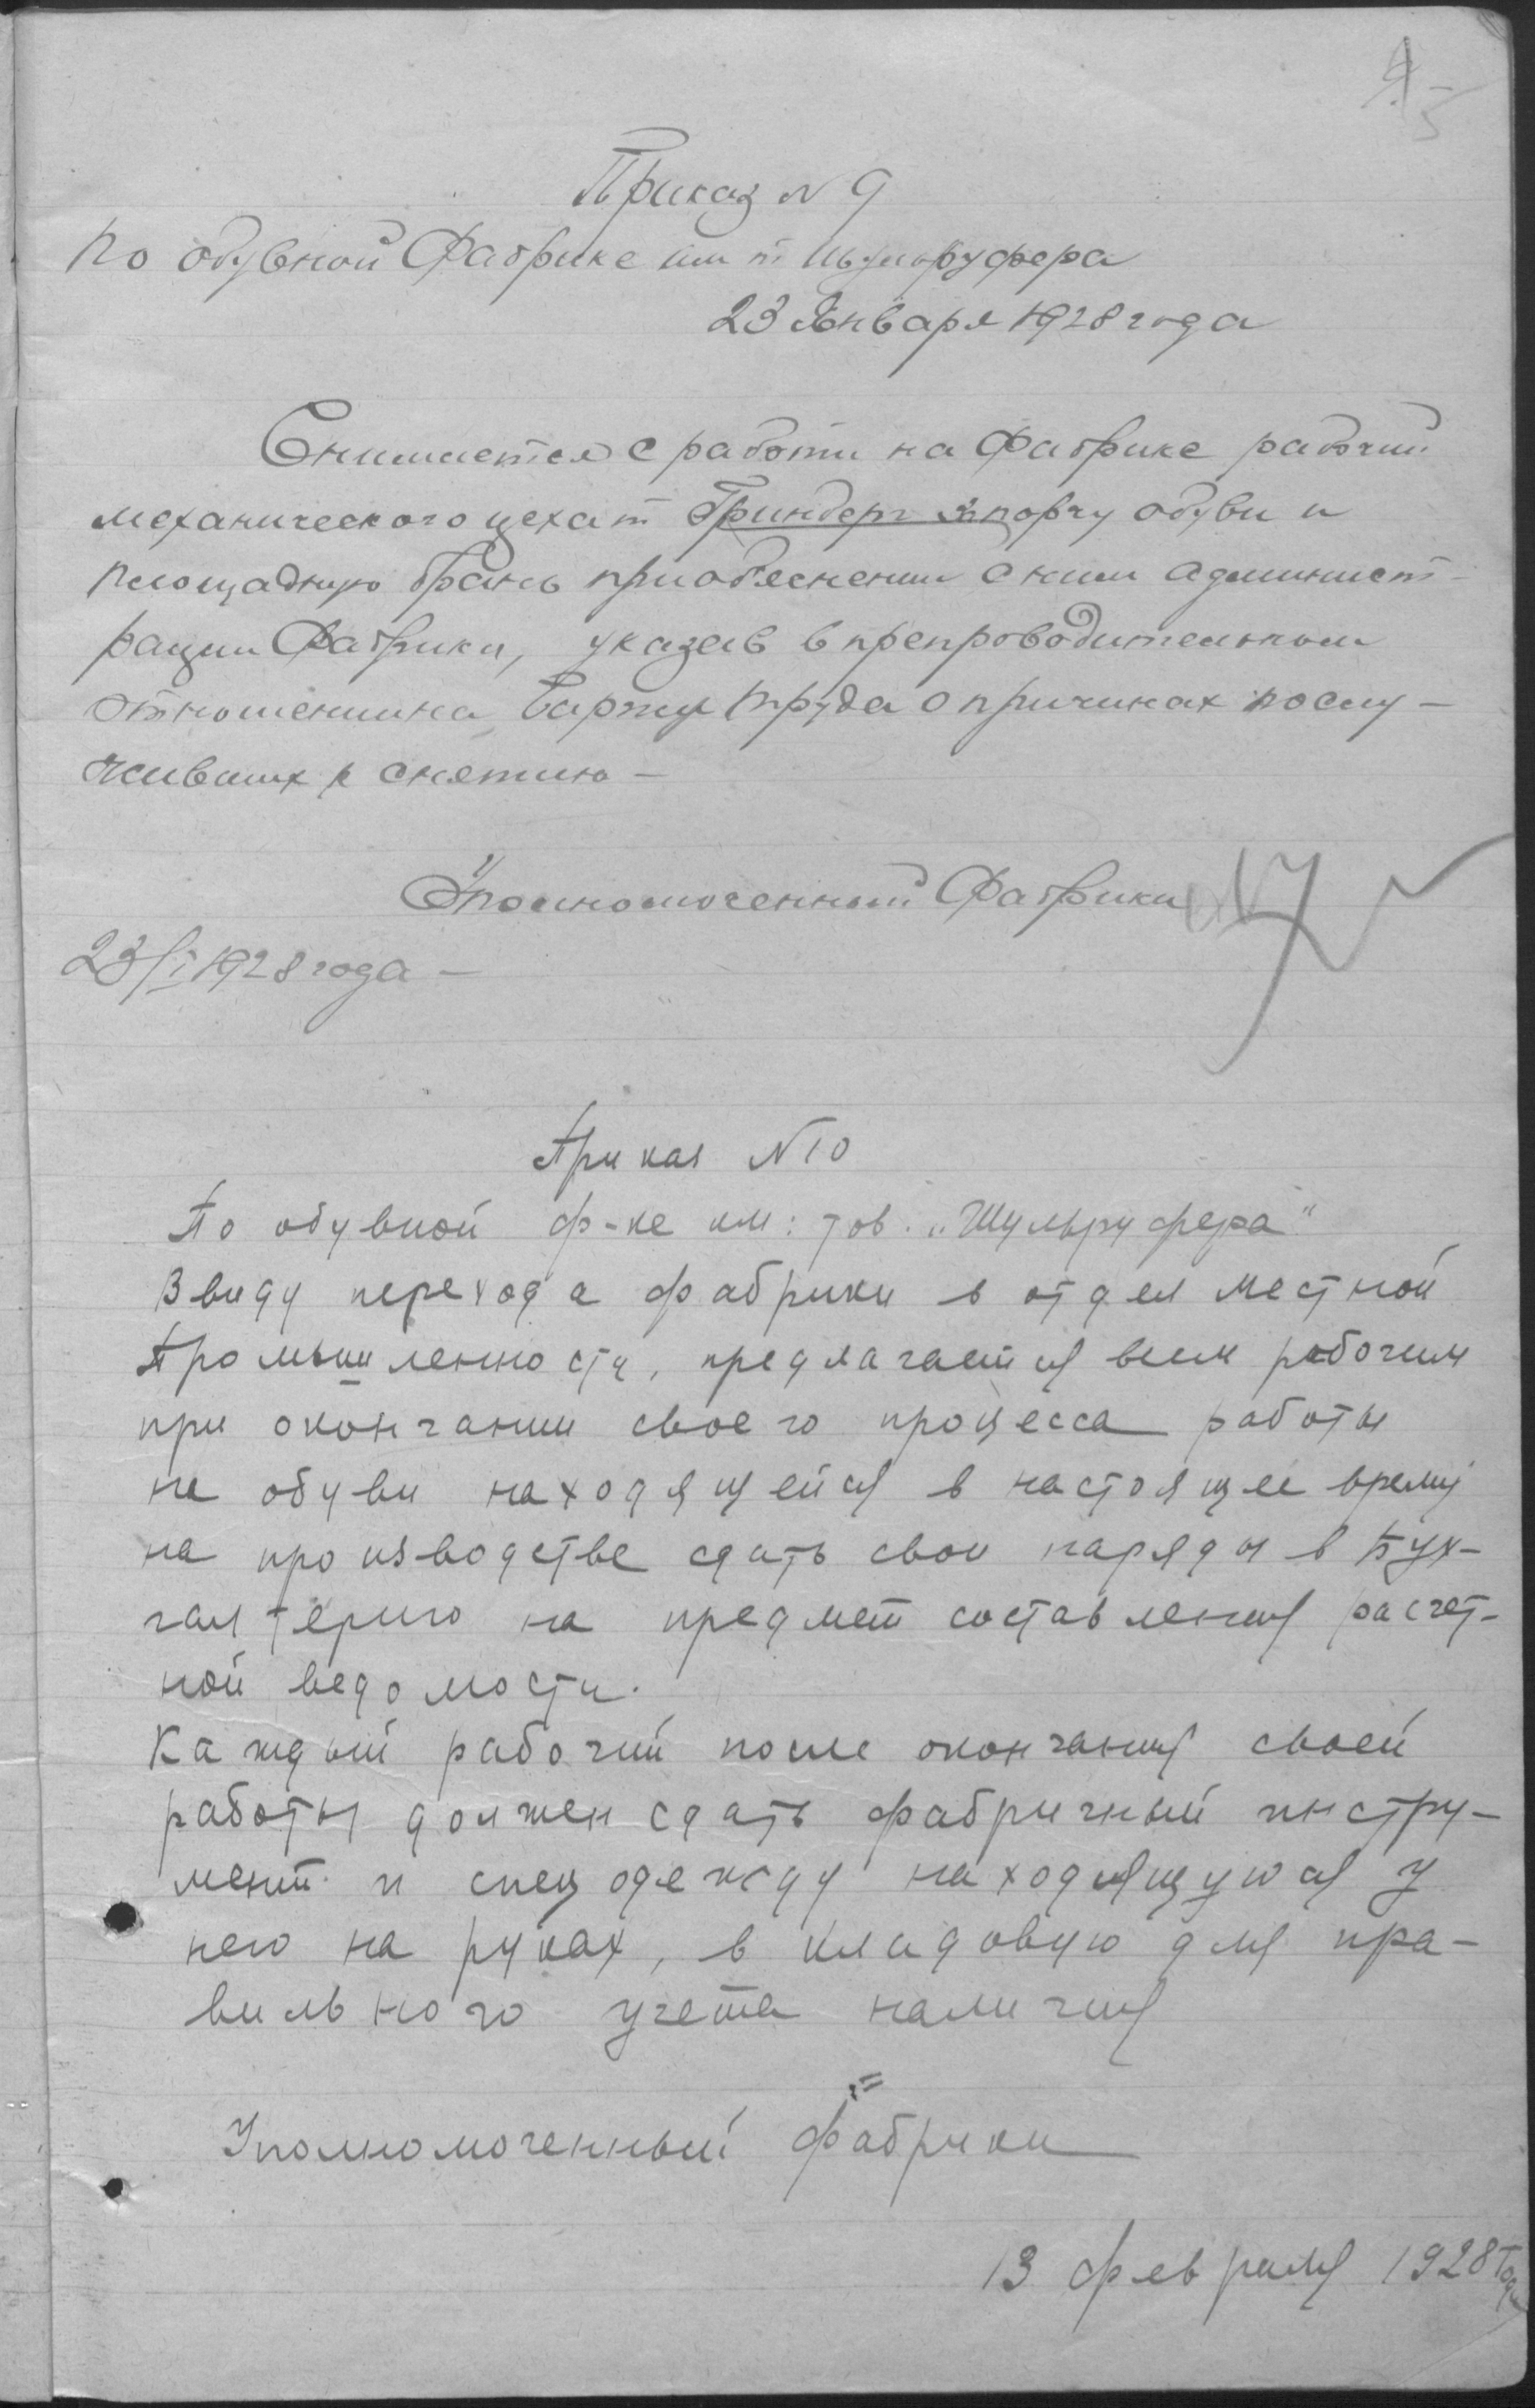 Приказ N 9
По обувной Фабрике им т Шульруфера
23 Января 1928 года
Снимается с работы на Фабрике рабочий
механического цеха т Гринберг за порчу обуви и
площадную брань при объяснении с ним админист-
рации Фабрики, указав в препроводительном
отношении на Биржу Труда о причинах послу-
живших к снятию —
Уполномоченный Фабрики
23/I 1928 года —
Приказ N 10
По обувной ф-ке им: тов. „Шульруфера"
Ввиду перехода фабрики в отдел местной
Промышленности, предлагается всем рабочим
при окончании своего процесса работы
на обуви находящейся в настоящее время
на производстве сдать свои наряды в Бух-
галтерию на предмет составления расчет-
ной ведомости.
Каждый рабочий после окончания своей
работы должен сдать фабричный инстру-
мент и спецодежду находящуюся у
него на руках, в кладовую для пра-
вильного учета наличия
Уполномоченный фабрики
13 февраля 1928 года